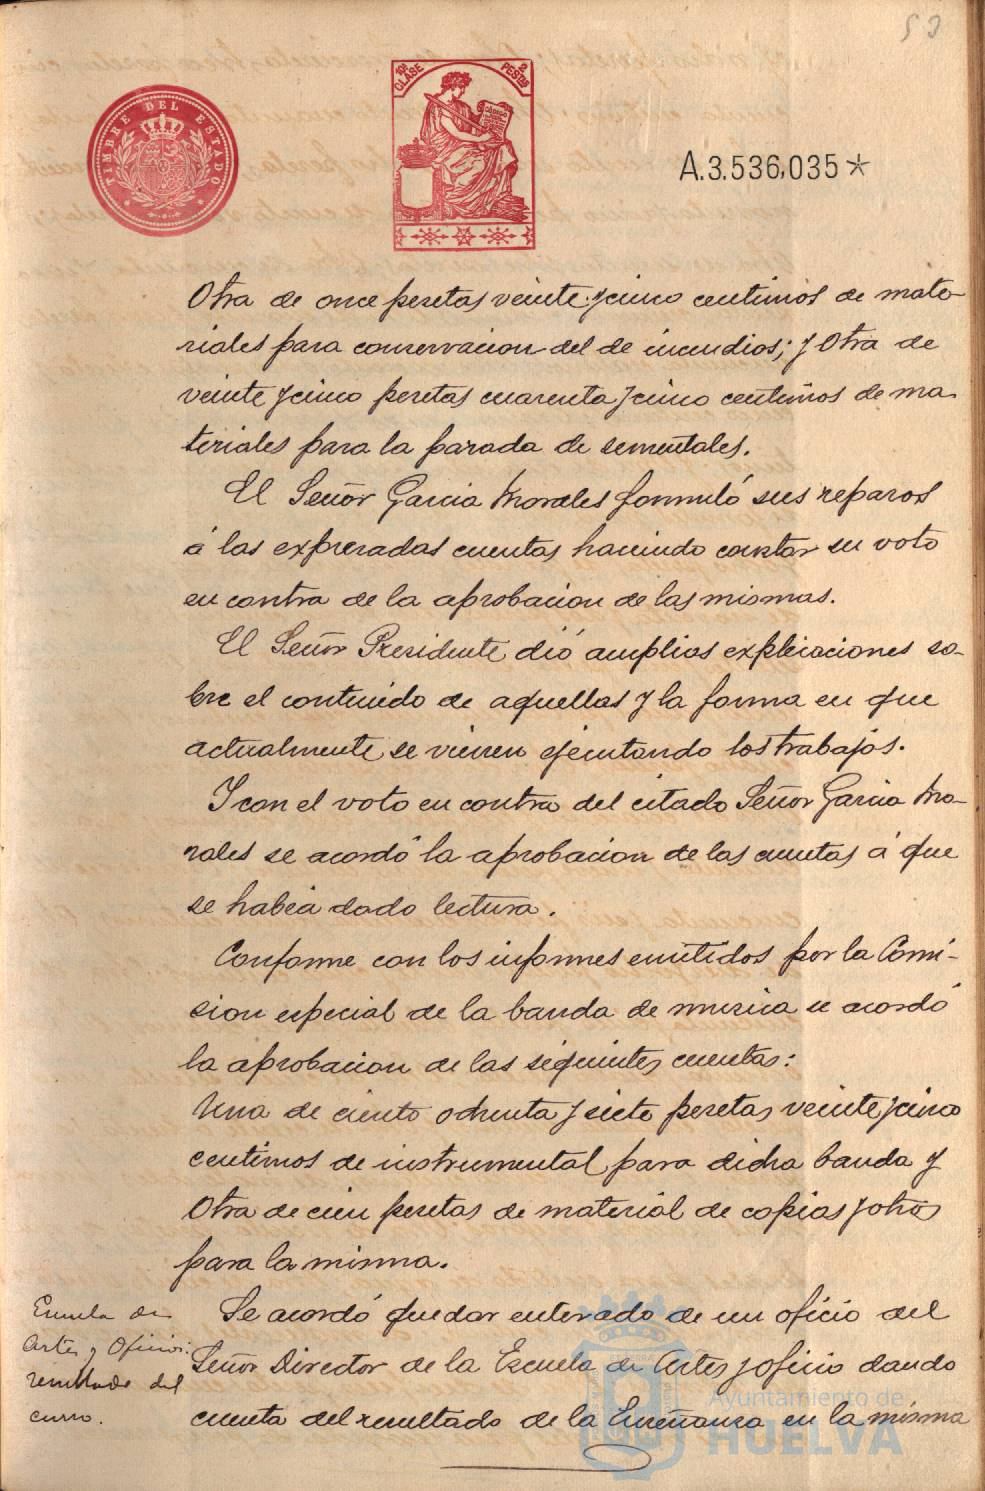 53
TIMBRE DEL ESTADO
10ª CLASE 2 PESETAS
A.3.536,035*
Otra de once pesetas veinte y cinco centimos de mate-
riales para conservacion del de incendios; y Otra de
veinte y cinco pesetas cuarenta y cinco centimos de ma-
teriales para la parada de sementales.
El Señor Garcia Morales formuló sus reparos
á las expresadas cuentas haciendo constar su voto
en contra de la aprobacion de las mismas.
El Señor Presidente dió amplias explicaciones so-
bre el contenido de aquellas y la forma en que
actualmente se vienen ejecutando los trabajos.
Y con el voto en contra del citado Señor Garcia Mo-
rales se acordó la aprobacion de las cuentas á que
se habia dado lectura.
Conforme con los informes emitidos por la Comi-
sion especial de la banda de musica se acordó
la aprobacion de las siguientes cuentas:
Una de ciento ochenta y siete pesetas veinte y cinco
centimos de instrumental para dicha banda y
Otra de cien pesetas de material de copias y otros
para la misma.
Escuela de
Artes y Oficios:
resultado del
curso.
Se acordó quedar enterado de un oficio del
Señor Director de la Escuela de Artes y oficio dando
cuenta del resultado de la Enseñanza en la misma
Ayuntamiento de
HUELVA